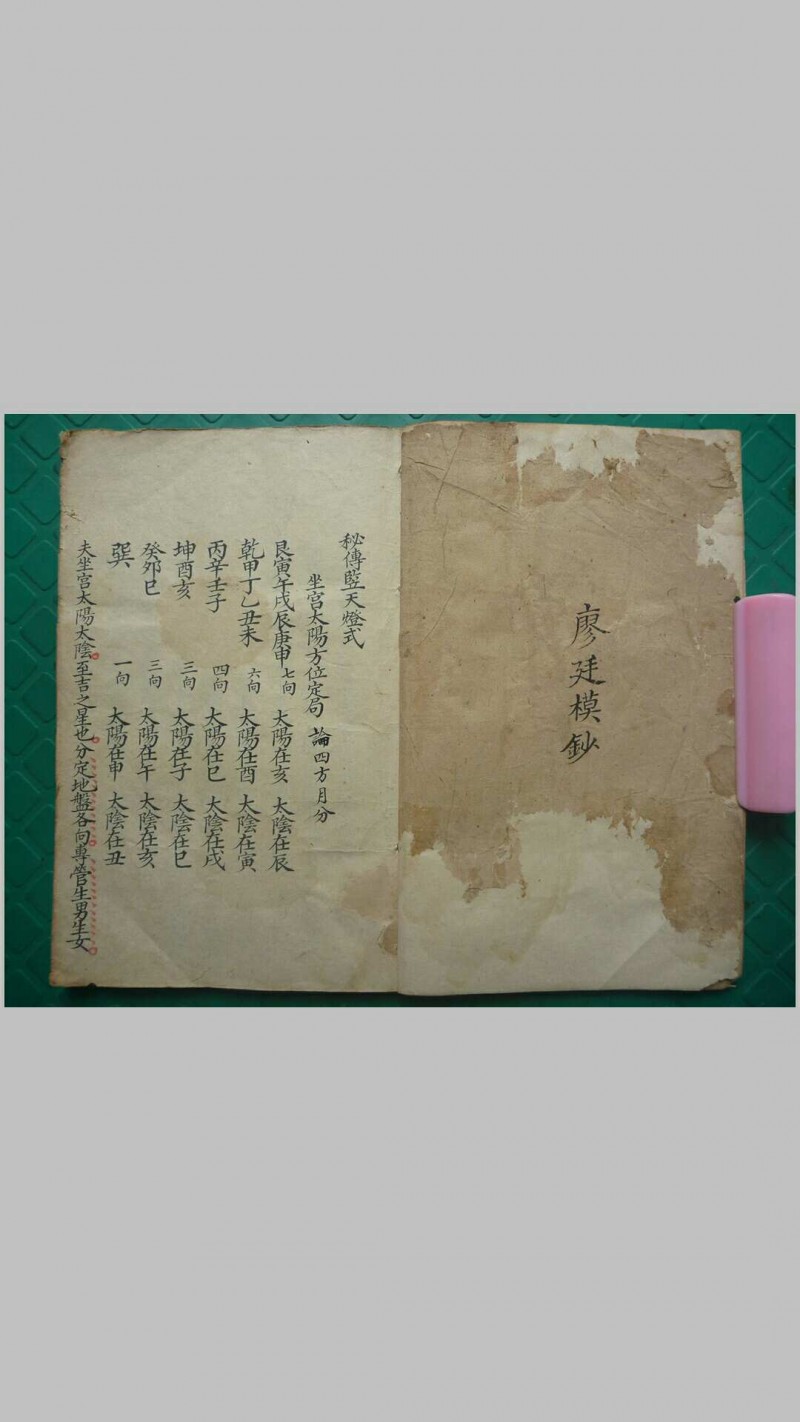 廖廷模鈔
秘傳竪天燈式
坐宮太陽方位定局 論四方月分
艮寅午戌辰庚申 七向 太陽在亥 太陰在辰
乾甲丁乙丑未 六向 太陽在酉 太陰在寅
丙辛壬子 四向 太陽在巳 太陰在戌
坤酉亥 三向 太陽在子 太陰在巳
癸夘巳 三向 太陽在午 太陰在亥
巽 一向 太陽在申 太陰在丑
夫坐宮太陽太陰至吉之星也分定地盤各向專管生男生女